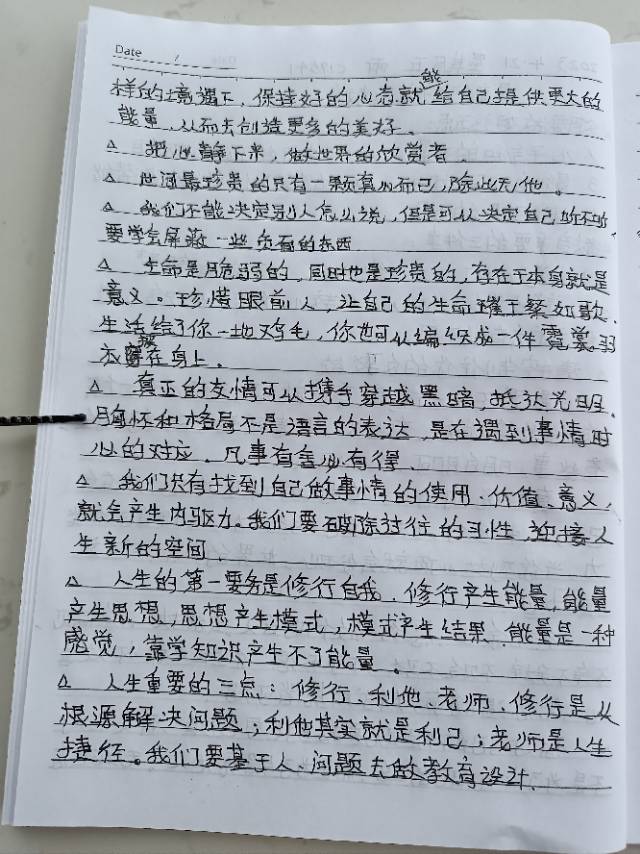 Date /
样的境遇下，保持好的心态就能给自己提供更大的
能量，从而去创造更多的美好。
△ 把心静下来，做世界的欣赏者。
△ 世间最珍贵的只有一颗真心而已，除此无他。
△ 我们不能决定别人怎么说，但是可以决定自己听不听，
要学会屏蔽一些负面的东西
△ 生命是脆弱的，同时也是珍贵的，存在于本身就是
意义。珍惜眼前人，让自己的生命璀王繁如歌.
生活给了你一地鸡毛，你也可以编织成一件霓裳羽
衣穿在身上.
△ 真正的友情可以携手穿越黑暗，抵达光明.
胸怀和格局不是语言的表达，是在遇到事情时
心的对应，凡事有舍必有得.
△ 我们只有找到自己做事情的使用、价值、意义，
就会产生内驱力。我们要破除过往的习性，迎接人
生新的空间.
△ 人生的第一要务是修行自我，修行产生能量，能量
产生思想，思想产生模式，模式产生结果，能量是一种
感觉，靠学知识产生不了能量。
△ 人生重要的三点：修行、利他、老师、修行是从
根源解决问题；利他其实就是利己；老师是人生
捷径。我们要基于人、问题去做教育设计.